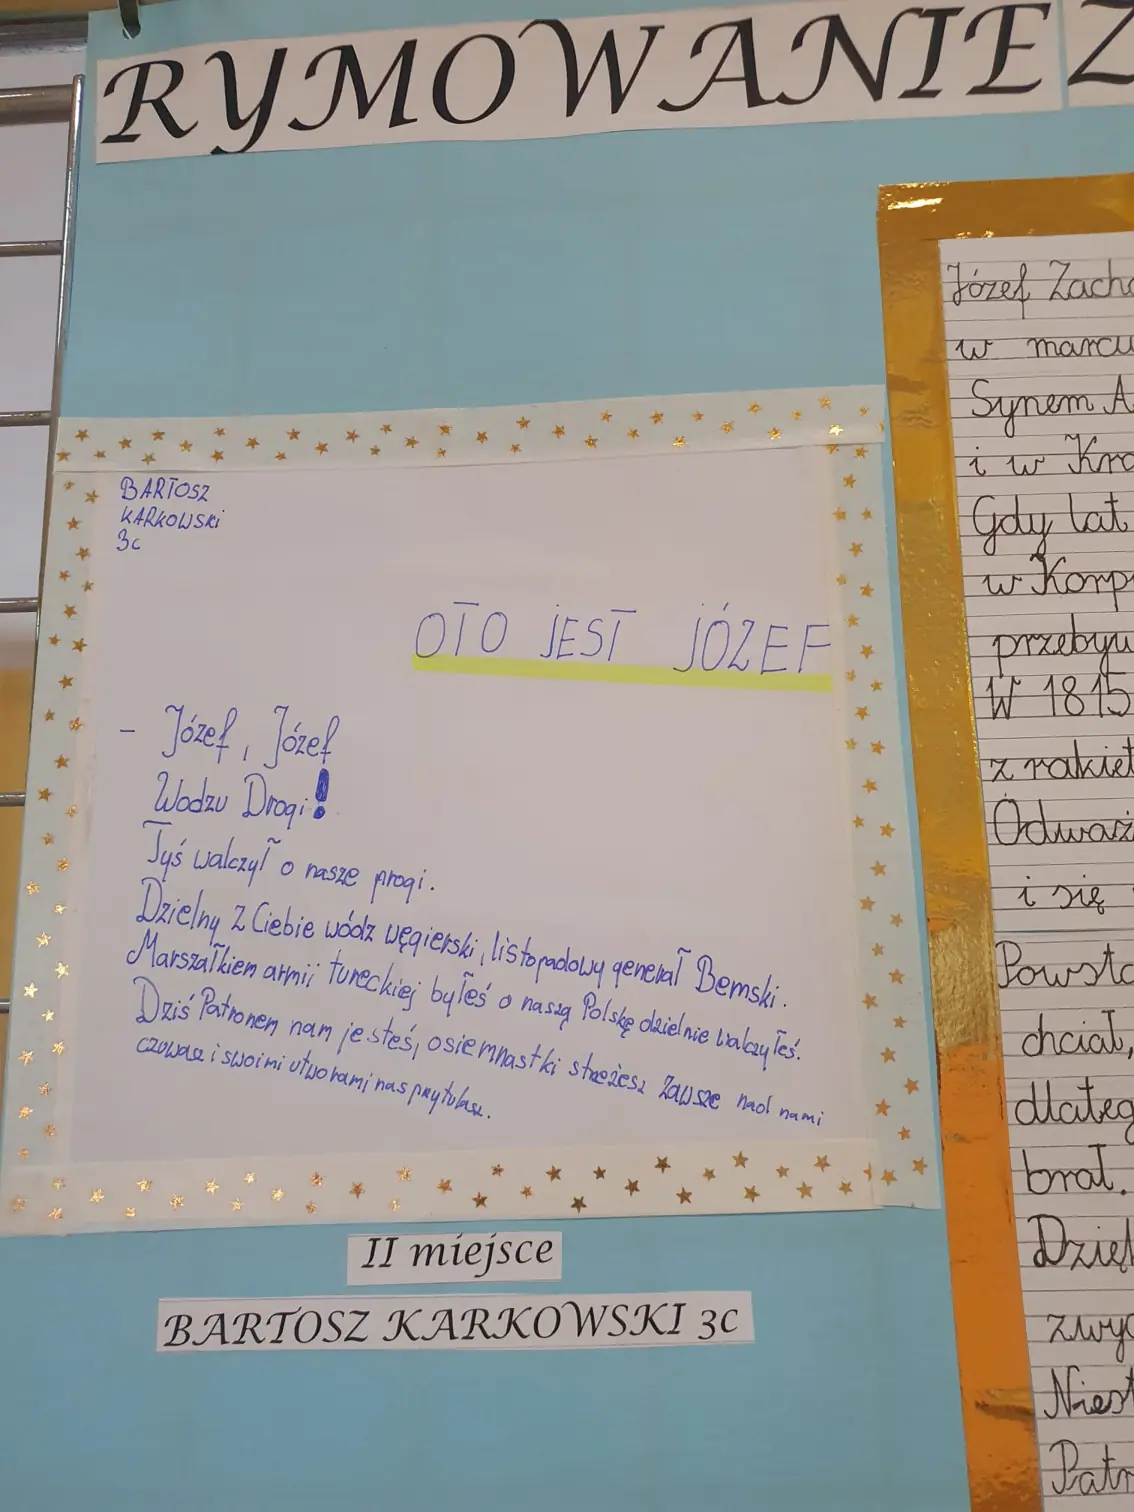 RYMOWANIE Z
BARTOSZ
KARKOWSKI
3c
OTO JEST JÓZEF
- Józef, Józef
Wodzu Drogi!
Tyś walczył o nasze progi.
Dzielny z Ciebie wódz węgierski, listopadowy generał Bemski.
Marszałkiem armii tureckiej byłeś o naszą Polskę dzielnie walczyłeś.
Dziś Patronem nam jesteś, osiemnastki strzeżesz zawsze nad nami
czuwasz i swoimi utworami nas
II miejsce
BARTOSZ KARKOWSKI 3c
Józef Zach
w marcu
Synem A
i w Kra
Gdy lat
w Korp
przebyw
W 1815
z rakiet
Odważ
i się
Powsta
chciał,
dlateg
brał.
Dzięk
zwyc
Niest
Patr